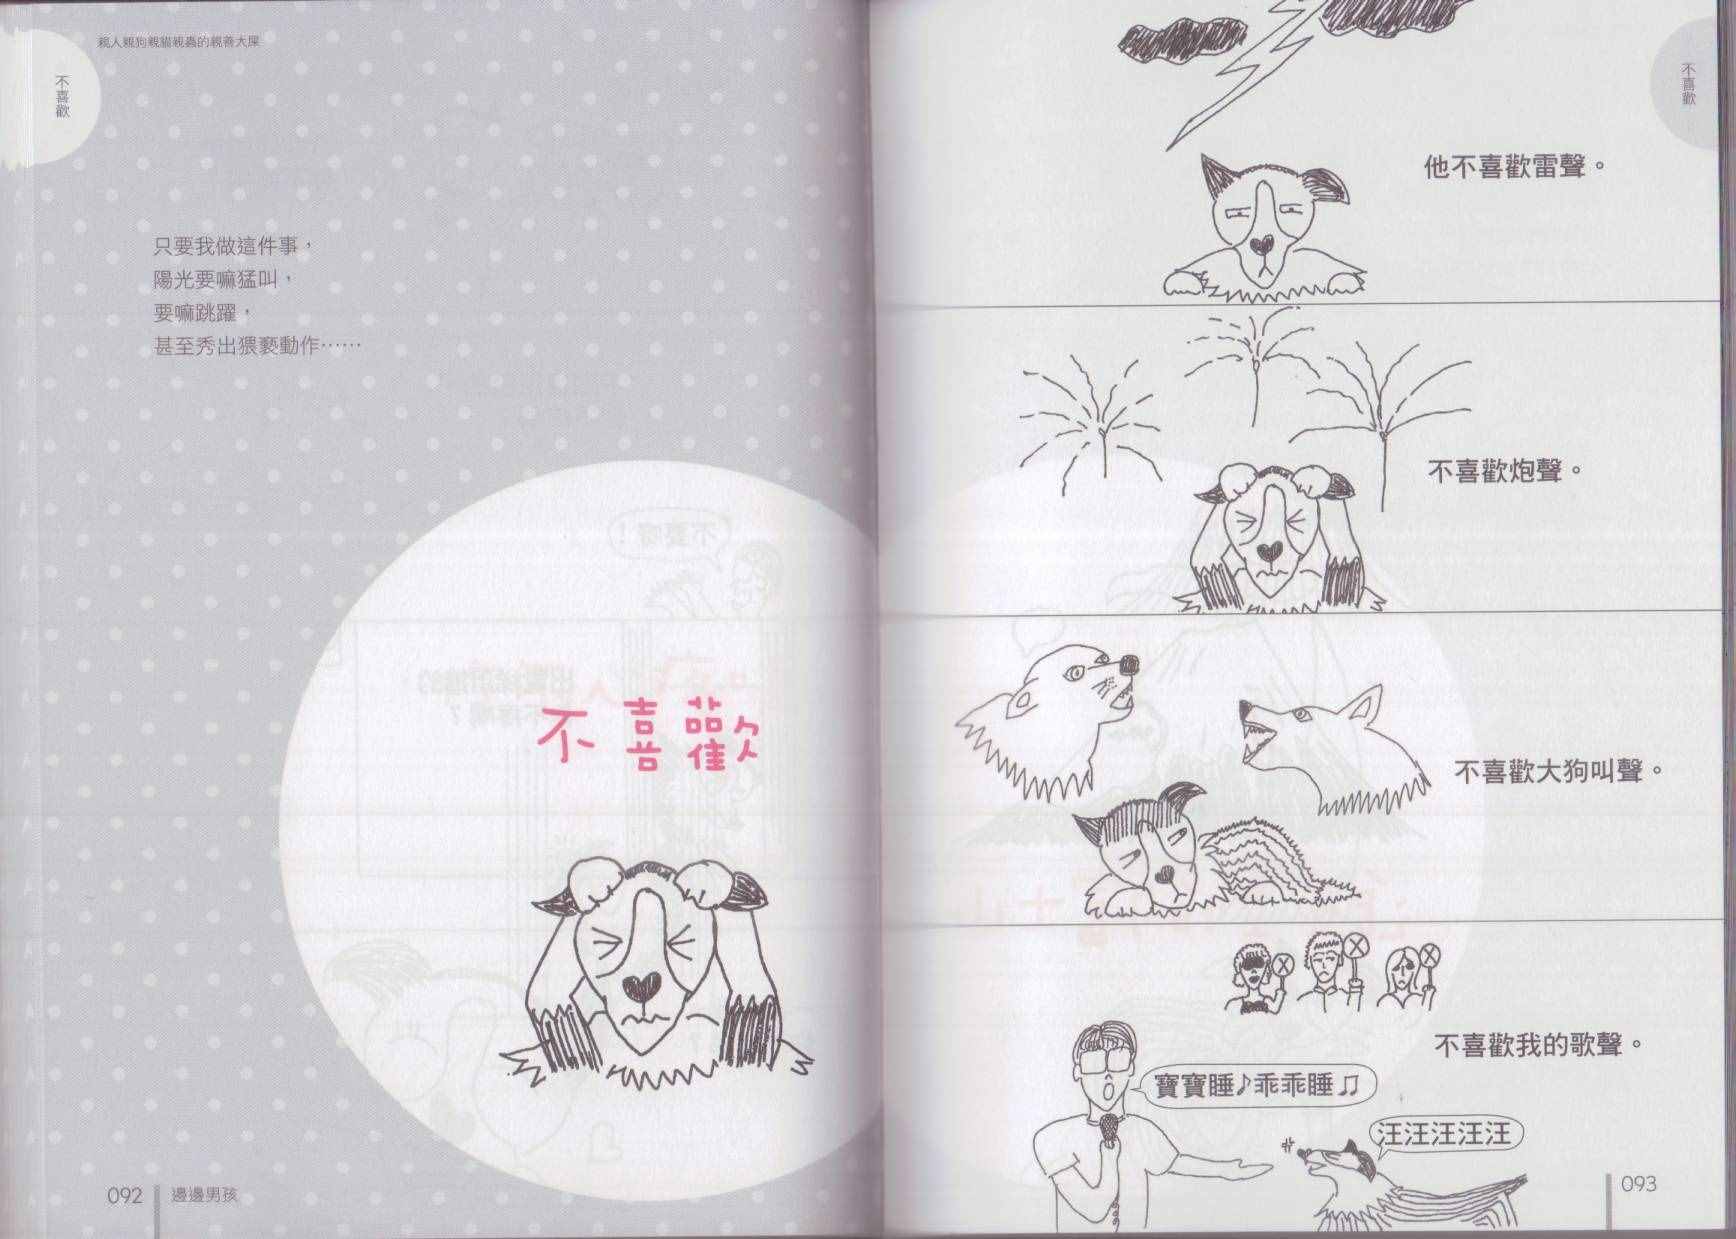 親人親狗親貓親蟲的親善大屎
不喜歡
只要我做這件事，
陽光要嘛猛叫，
要嘛跳躍，
甚至秀出猥褻動作……
不喜歡
092
邊邊男孩
不喜歡
他不喜歡雷聲。
不喜歡炮聲。
不喜歡大狗叫聲。
不喜歡我的歌聲。
寶寶睡♪乖乖睡♫
汪汪汪汪汪
093